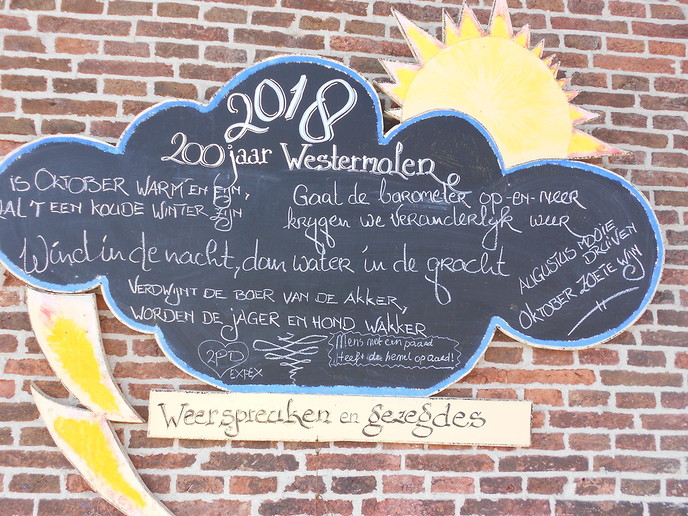 2018
200 jaar Westermolen
is OKTOBER WARM EN FIJN,
ZAL 'T EEN KOUDE WINTER ZIJN
Gaat de barometer op-en-neer
krygen we veranderlyk weer
Wind in de nacht, dan water in de gracht
AUGUSTUS MOOIE
DRUIVEN
OKTOBER ZOETE WIJN
VERDWIJNT DE BOER VAN DE AKKER,
WORDEN DE JAGER EN HOND WAKKER
2PD
EXPEX
Mens met een paard
Heeft de hemel op aard!
Weerspreuken en gezegdes